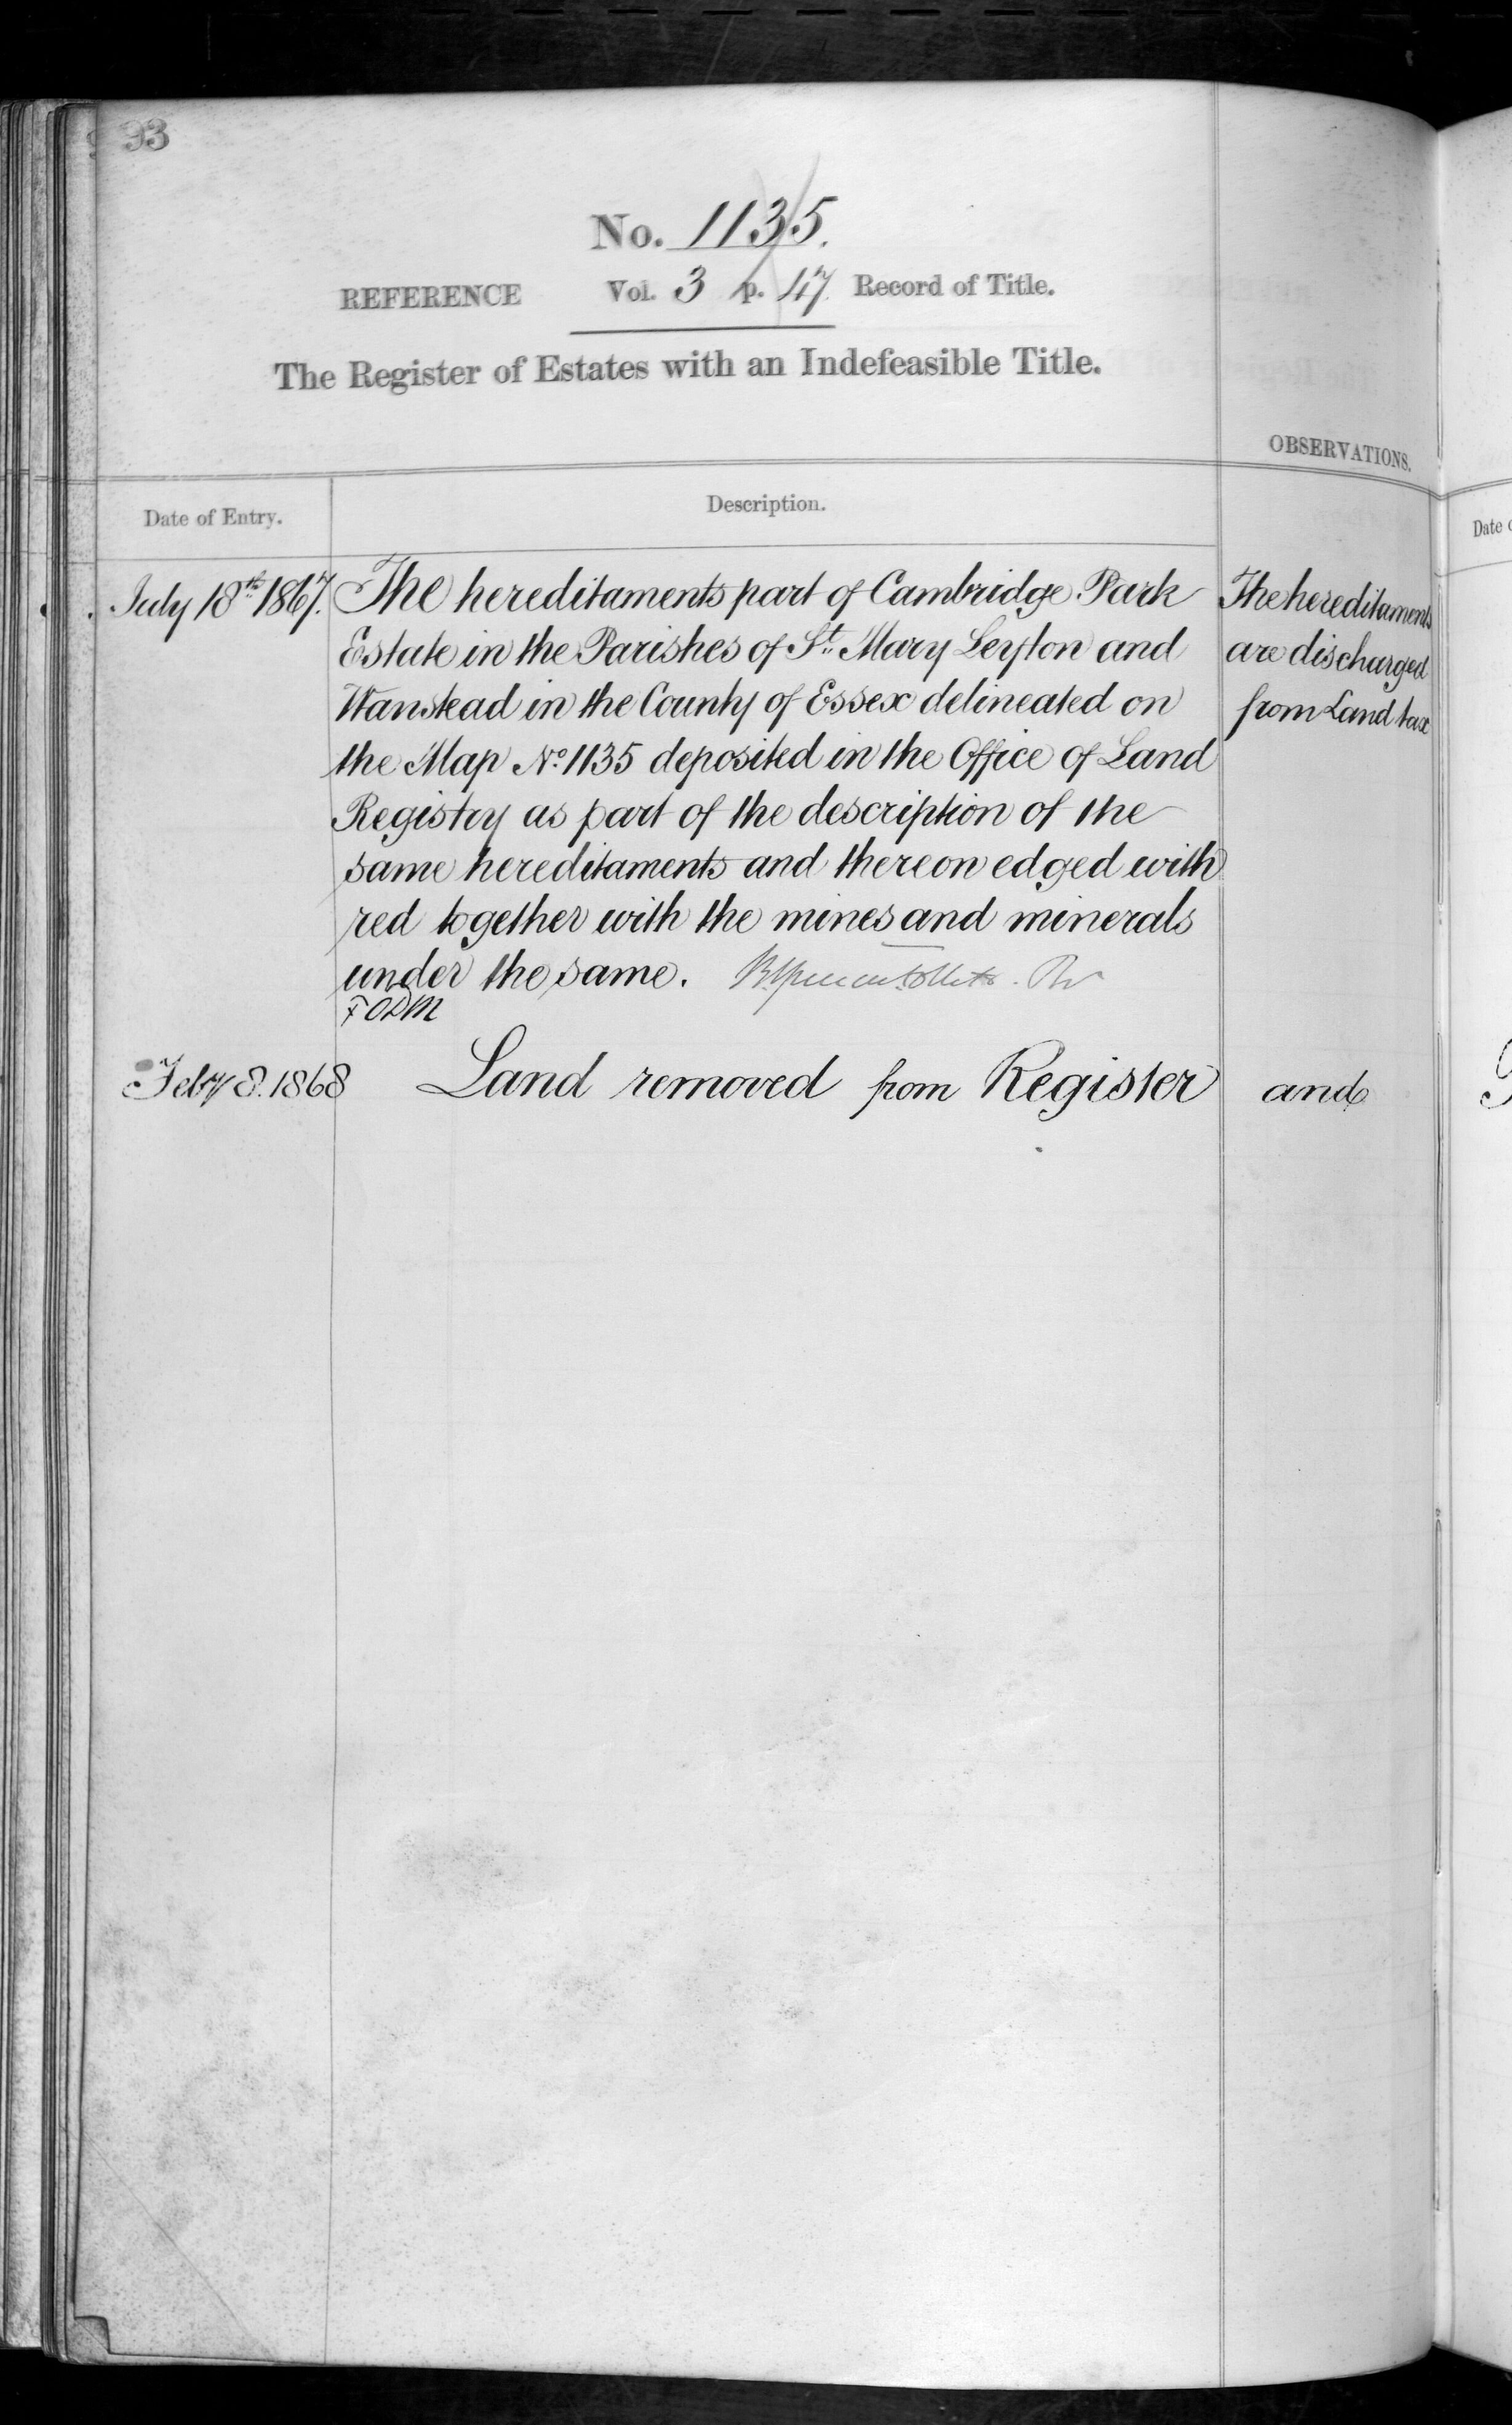 93
No. 1135.
REFERENCE Vol. 3 p. 47. Record of Title.
The Register of Estates with an Indefeasible Title.
OBSERVATIONS.
Date of Entry.
Description.
Date
July 18th 1867.
The hereditaments part of Cambridge Park
Estate in the Parishes of St. Mary Leyton and
Wanstead in the County of Essex delineated on
the Map No. 1135 deposited in the Office of Land
Registry as part of the description of the
same hereditaments and thereon edged with
red together with the mines and minerals
under the same.
The hereditaments
are discharged
from Land tax
Feby 8. 1868 Land removed from Register and